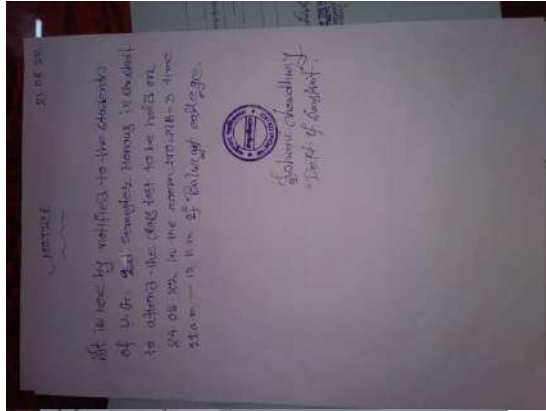 NOTICE
21.06.22
It is here by notified to the students
of U.G. 2nd semester Honours in Sanskrit
to attend the class test to be held on
24.06.22 in the room no. MB-3 time
11 a.m – 12 p.m of
Sohini Chowdhury
Dept of Sanskrit.